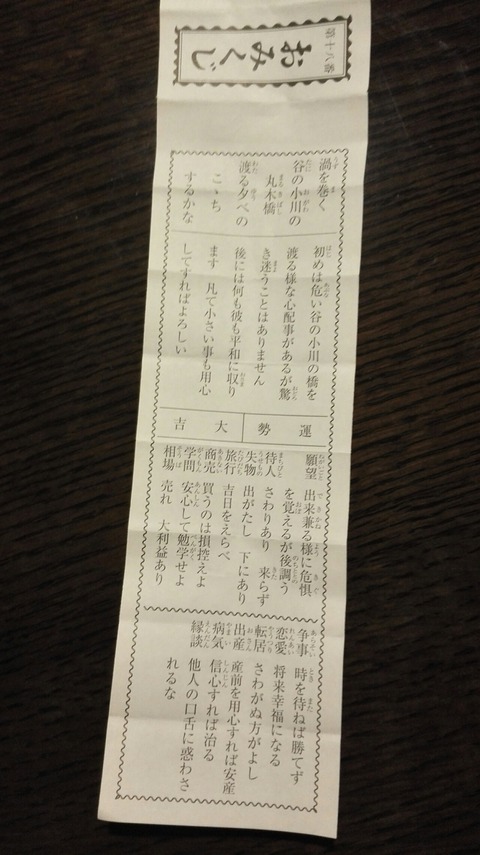 第十八番
おみくじ
渦を巻く
谷の小川の
丸木橋
渡る夕べの
こゝち
するかな
初めは危い谷の小川の橋を
渡る様な心配事があるが驚
き迷うことはありません
後には何も彼も平和に収り
ます 凡て小さい事も用心
してすればよろしい
運勢 大吉
願望 出来兼る様に危惧
を覚えるが後調う
待人 さわりあり 来らず
失物 出がたし 下にあり
旅行 吉日をえらべ
商売 買うのは損控えよ
学問 安心して勉学せよ
相場 売れ 大利益あり
争事 時を待ねば勝てず
恋愛 将来幸福になる
転居 さわがぬ方がよし
出産 産前を用心すれば安産
病気 信心すれば治る
縁談 他人の口舌に惑わさ
れるな